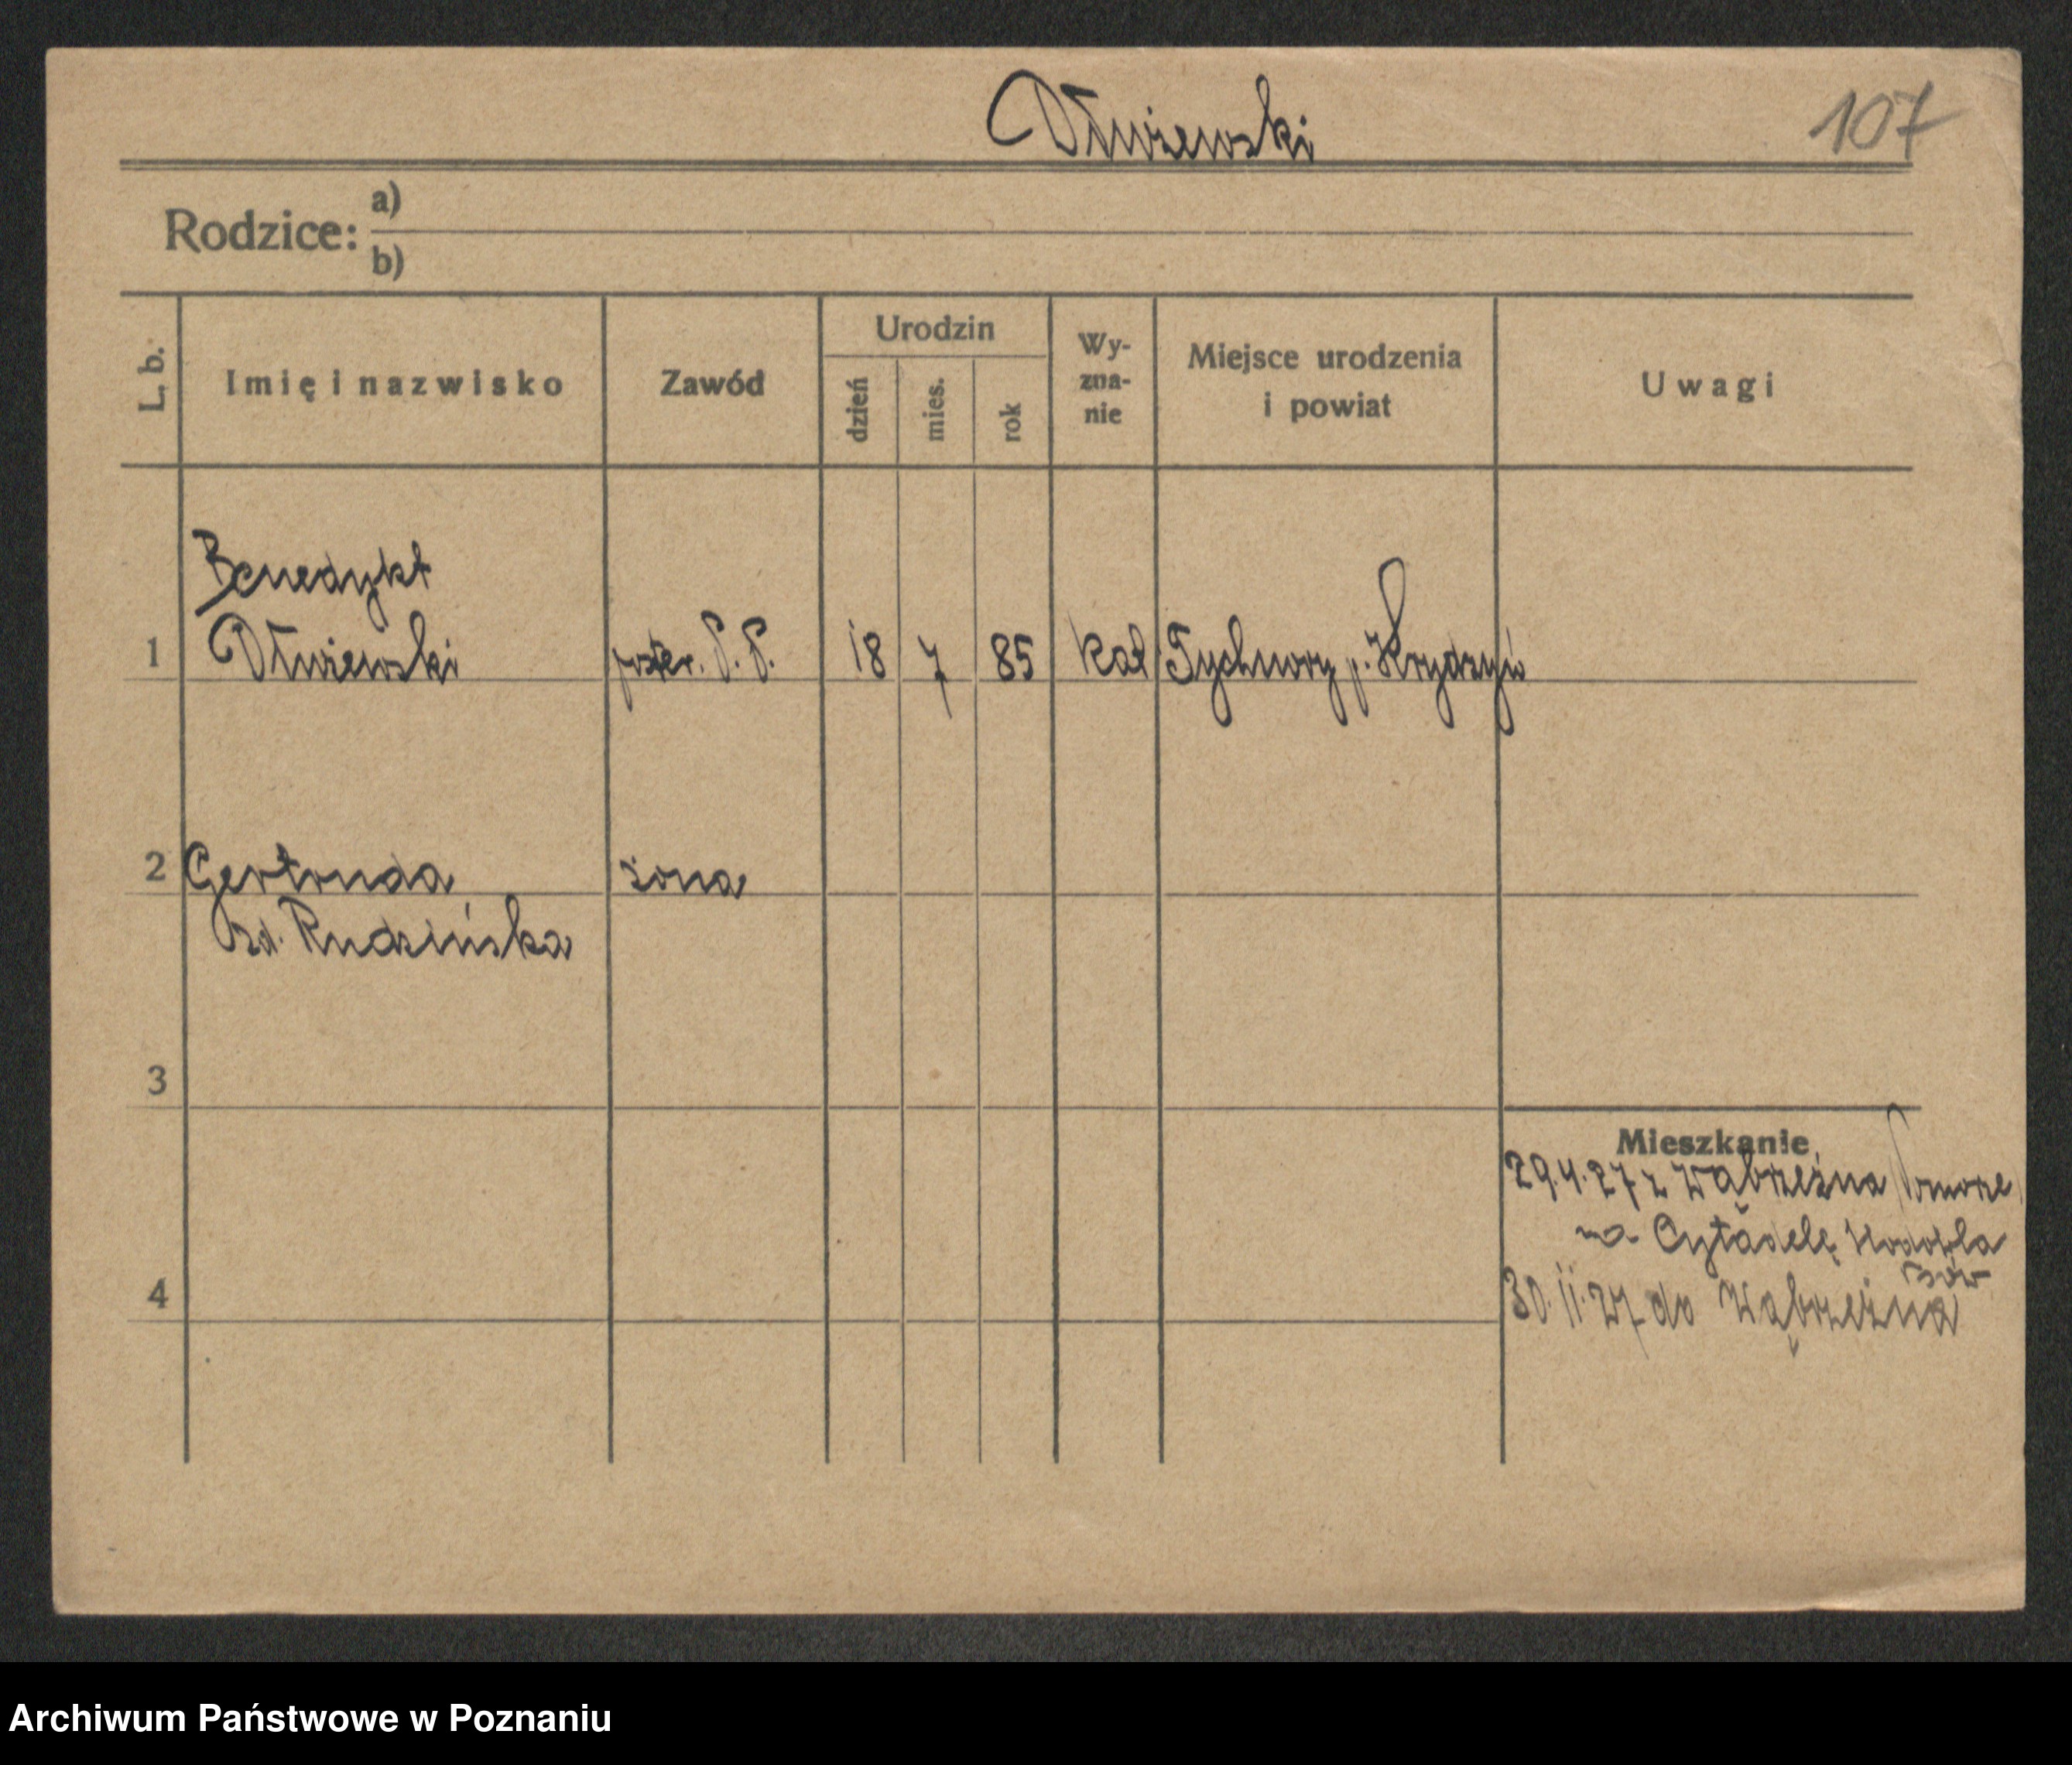 Dłużewski
107
Rodzice: a)
b)
L. b. Imię i nazwisko Zawód Urodzin dzień mies. rok Wy-zna-nie Miejsce urodzenia i powiat Uwagi
Benedykt
1 Dłużewski poster. P. P. 18 7 85 kat Tychnowy p. Kwydzyń
2 Gertruda żona
zd. Rudzińska
3
Mieszkanie
29.4.27 z Wąbrzeźna Pomorze
na Cytadelę
4
30.11.27 do Wąbrzeźna
Archiwum Państwowe w Poznaniu